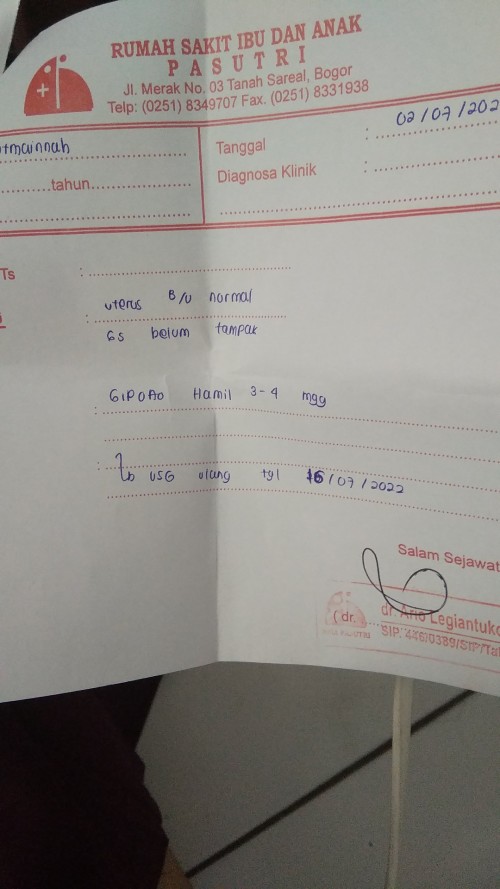 RUMAH SAKIT IBU DAN ANAK
PASUTRI
Jl. Merak No. 03 Tanah Sareal, Bogor
Telp: (0251) 8349707 Fax. (0251) 8331938
tmainnah
tahun
Tanggal : 02/07/202
Diagnosa Klinik :
Ts :
: uterus B/U normal
GS belum tampak
: G1P0A0 Hamil 3-4 mgg
: USG ulang tgl 16/07/2022
Salam Sejawat
(dr. dr. Ario Legiantuko
SIP. 446/0389/SIP/